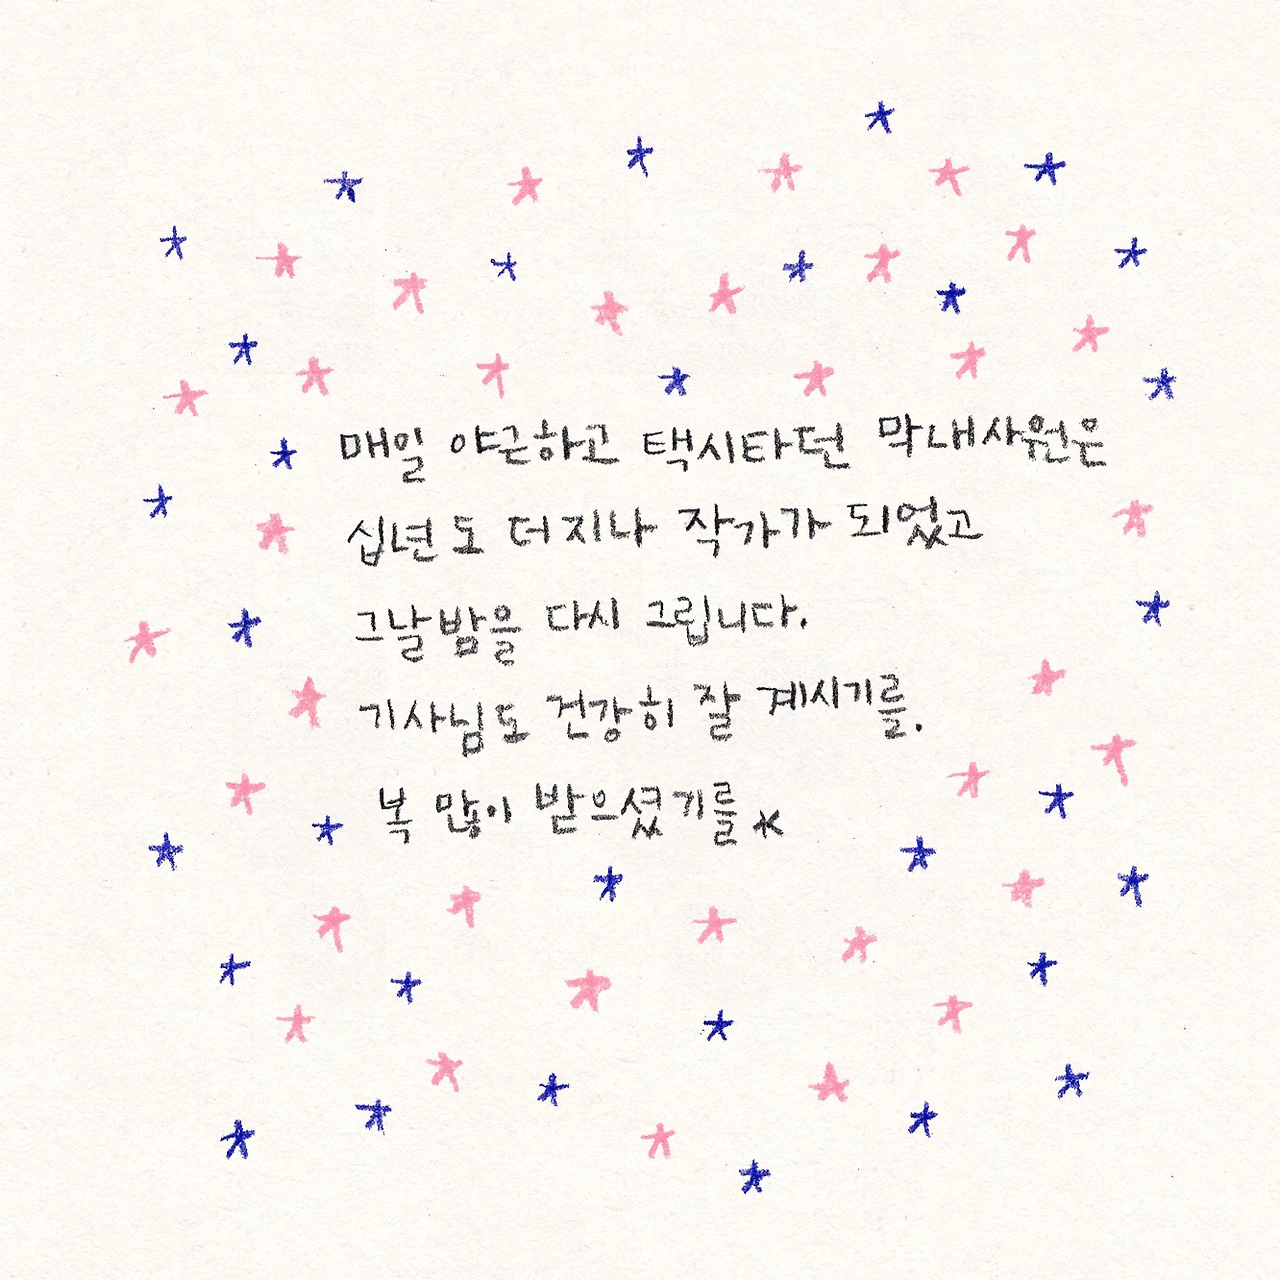 매일 야근하고 택시타던 막내사원은
십년도 더 지나 작가가 되었고
그날밤을 다시 그립니다.
기사님도 건강히 잘 계시기를.
복 많이 받으셨기를